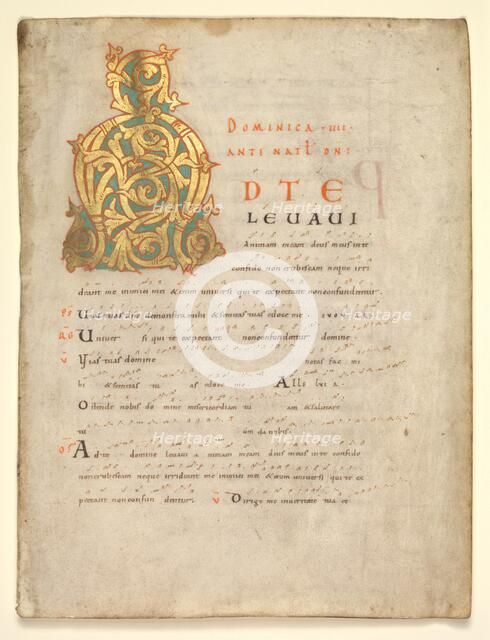 A
DOMINICA · IIII ·
ANTE NAT DNI
D T E
LEUAUI
Animam meam deus meus in te
confido non erubescam neque irri
deant me inimici mei & enim uniuersi qui te expectant non confundentur.
PS Uias tuas dne demonstra mihi & semitas tuas edoce me
Uniuer si qui te expectant non confundentur domine.
V Uias tuas domine notas fac mi
hi & semitas tu as edoce me. Alle luia.
Ostende nobis do mine misericordiam tu am & salutare
tu um da nobis.
OF Ad te domine leuaui animam meam deus meus in te confido
non erubescam neque irrideant me inimici mei & enim uniuersi qui te ex
pectant non confun dentur. V Dirige me in ueritate tua et
Heritage
Heritage
Heritage
Heritage
Heritage
C